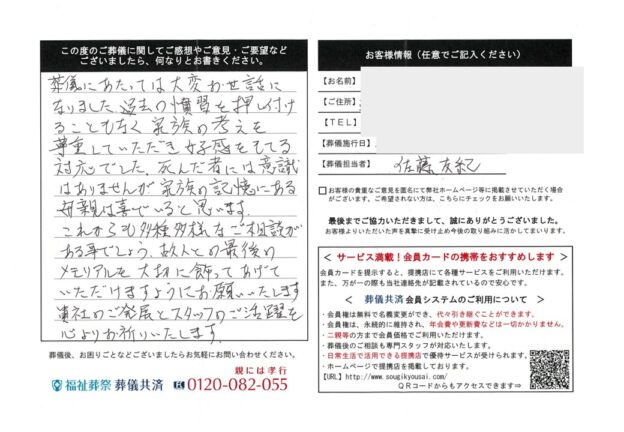 この度のご葬儀に関してご感想やご意見・ご要望など
ございましたら、何なりとお書きください。
葬儀にあたっては大変お世話に
なりました。過去の慣習を押し付け
ることもなく家族の考えを
尊重していただき好感をもてる
対応でした。死んだ者には意識
はありませんが家族の記憶にある
母親は喜でいると思います。
これからも多種多様なご相談が
ある事でしょう。故人との最後の
メモリアルを大切に飾ってあげて
いただけますようにお願いいたします
貴社のご発展とスタッフのご活躍を
心よりお祈りいたします。
葬儀後、お困りごとなどございましたらお気軽にお問い合わせください。
親には孝行
福祉葬祭 葬儀共済 0120-082-055
お客様情報（任意でご記入ください）
【お名前】
【ご住所】
【ＴＥＬ】
【葬儀施行日】
【葬儀担当者】 佐藤友紀
□お客様の貴重なご意見を匿名にて弊社ホームページ等に掲載させていただく場合
がございます。ご希望されない方は、こちらにチェックをお願いいたします。
最後までご協力いただきまして、誠にありがとうございました。
お客様よりいただいた声を真摯に受け止め今後の取り組みに活かしてまいります。
＜ サービス満載！会員カードの携帯をおすすめします ＞
会員カードを提示すると、提携店にて各種サービスをご利用いただけます。
また、万が一の際も当社連絡先が記載されているので安心です。
＜ 葬儀共済 会員システムのご利用について ＞
・会員権は無料で名義変更ができ、代々引き継ぐことができます。
・会員権は、永続的に維持され、年会費や更新費などは一切かかりません。
・二親等の方まで会員価格でご利用いただけます。
・葬儀後のご相談も専門スタッフが対応いたします。
・日常生活で活用できる提携店で優待サービスが受けられます。
・ホームページで提携店を掲載しております。
【URL】http://www.sougikyousai.com/
ＱＲコードからもアクセスできます⇒